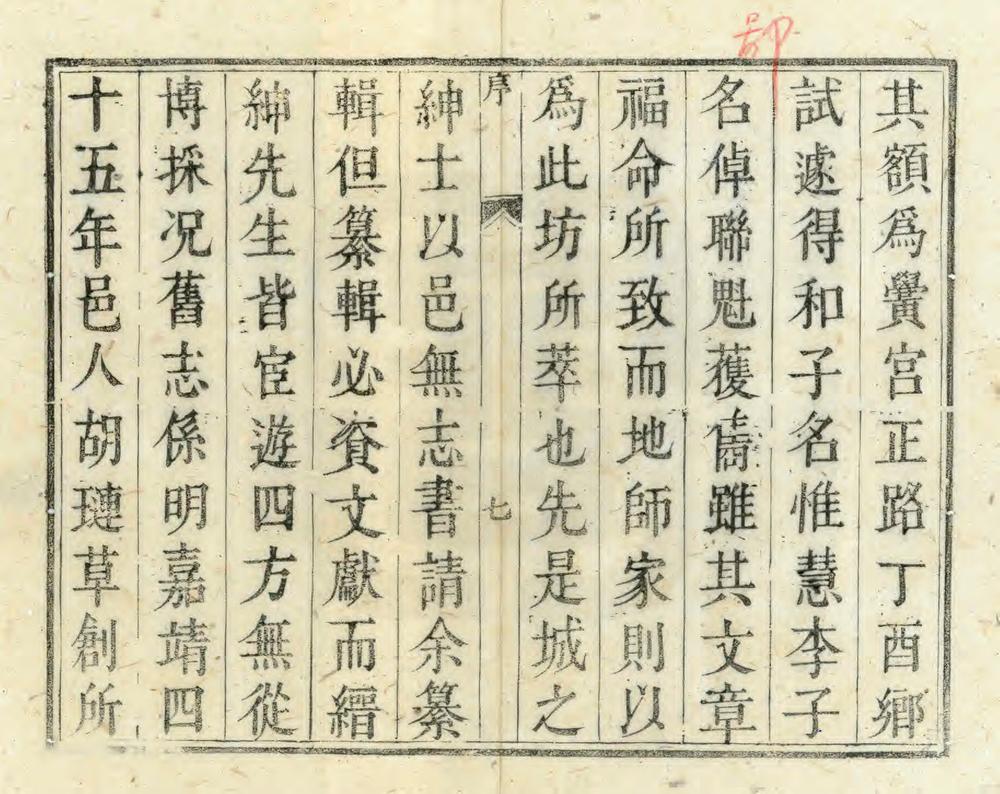 其額為黌宮正路丁酉鄉
試遽得和子名惟慧李子
名倬聯魁獲雋雖其文章
福命所致而地師家則以
為此坊所萃也先是城之
序
七
紳士以邑無志書請余纂
輯但纂輯必資文獻而縉
紳先生皆宦遊四方無從
博採况舊志係明嘉靖四
十五年邑人胡璉草創所